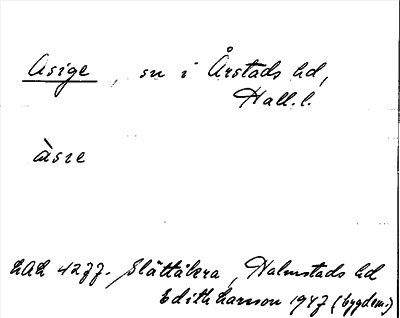 Asige, sn i Årstads hd,
Hall.l.
àsze
LAL 4277. Slättåkra, Halmstads hd
Edith Larsson 1947 (bygdem.)